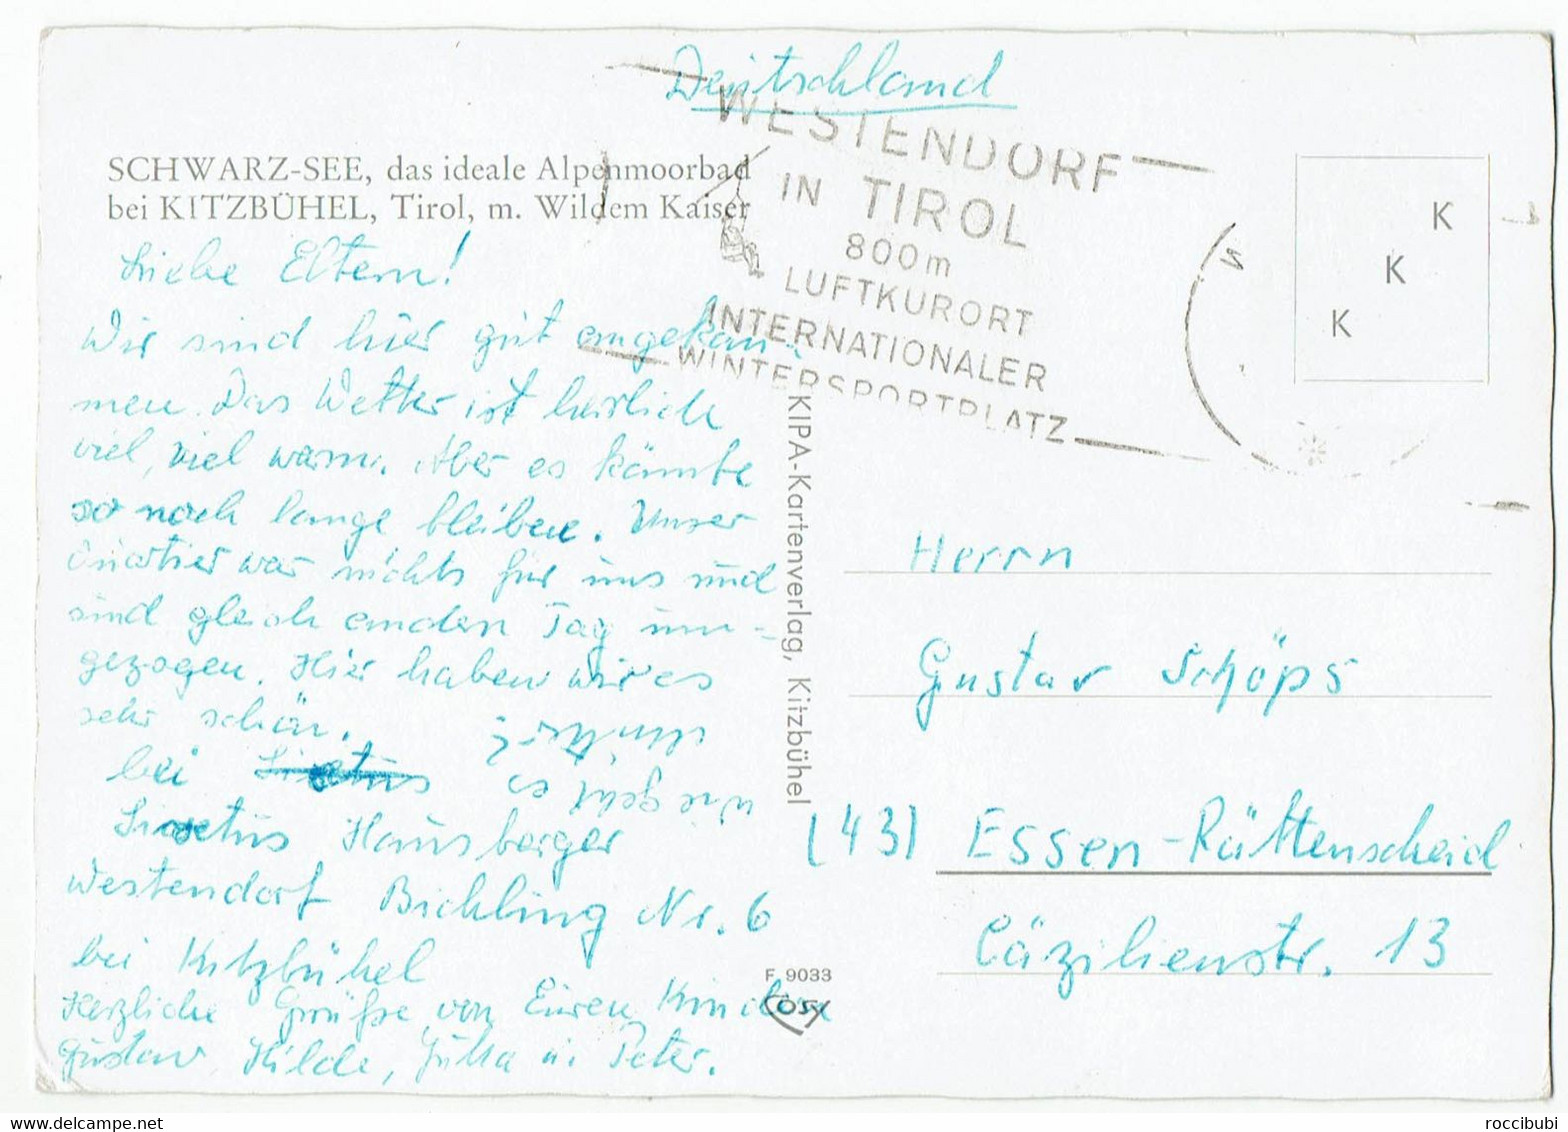 Deutschland
SCHWARZ-SEE, das ideale Alpenmoorbad
bei KITZBÜHEL, Tirol, m. Wildem Kaiser
WESTENDORF
IN TIROL
800m
LUFTKURORT
INTERNATIONALER
WINTERSPORTPLATZ
K
K
K
Liebe Eltern!
Wir sind hier gut angekom-
men. Das Wetter ist herrlich
viel, viel warm. Aber es könnte
so noch lange bleiben. Unser
Quartier war nichts für uns und
sind gleich anderen Tag um-
gezogen. Hier haben wir es
sehr schön.
wie geht es
bei
Hausberger
Westendorf Bichling Nr. 6
bei Kitzbühel
Herzliche Grüße von Euren Kindern
Gustav, Hilde, Jutta u. Peter.
KIPA-Kartenverlag, Kitzbühel
F 9033
COSY
Herrn
Gustav Schöps
(43) Essen-Rüttenscheid
Cäzilienstr. 13
roccibubi